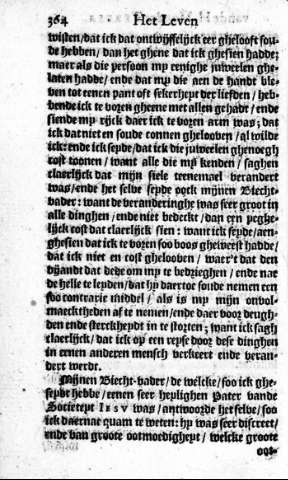 364 Het Leven
wisten/dat ick dat ontwijffelijck eer ghelooft sou-
de hebben/ dan het ghene dat ick ghesien hadde;
maer als die persoon my eenighe juweelen ghe-
laten hadde/ ende dat my die aen de handt ble-
ven tot eenen pant oft sekerheyt der liefden/ heb-
bende ick te voren gheene met allen gehadt/ ende
siende my rijck daer ick te voren arm was; dat
ick dat niet en soude connen ghelooven/ al wilde
ick: ende ick seyde/dat ick die juweelen ghenoegh
cost toonen/ want alle die my kenden/ saghen
claerlijck dat mijn siele teenemael verandert
was/ende het selve seyde oock mijnen Biecht-
vader: want de veranderinghe was seer groot in
alle dinghen/ ende niet bedeckt/ dan een
lijck cost dat claerlijck sien: want ick seyde/aen-
ghesien dat ick te voren soo boos gheweest hadde/
dat ick niet en cost ghelooben/ waer't dat den
dyandt dat dede om my te bedrieghen/ ende nae
de helle te leyden/ dat hy daer toe soude nemen een
soo contrarie middel/ als is my mijn onvol-
maecktheden af te nemen/ende daer voor deugh-
den ende sterckheydt in te storten; want ick sagh
claerlijck/ dat ick op een reyse door dese dinghen
in eenen anderen mensch verkeert ende veran-
dert werdt.
Mijnen Biecht-vader/ de welcke/ soo ick ghe-
seydt hebbe/ eenen seer heylighen Pater vande
Societeyt IESV was/ antwoorde het selve/ soo
ick daernae quam te weten: hy was seer discreet/
ende van groote ootmoedigheyt/ welcke groote
oot-